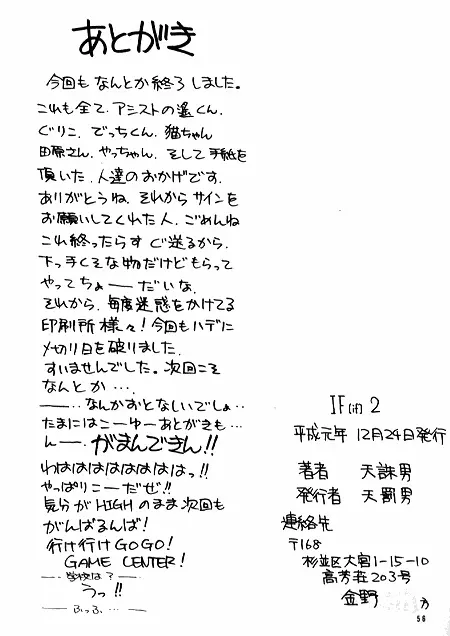 あとがき
今回も なんとか終了しました。
これも全て、アシストの遙くん、
ぐりこ、でっちくん、猫ちゃん
田原さん、やっちゃん、そして手紙を
頂いた、人達のおかげです。
ありがとうね、それからサインを
お願いしてくれた人、ごめんね
これ終ったらすぐ送るから、
下っ手くそな物だけどもらって
やってちょーーだいな、
それから、毎度迷惑をかけてる
印刷所様々!今回もハデに
〆切り日を破りました、
すいませんでした。次回こそ
なんとか…、
ー‥、なんかおとなしいでしょ‥
たまにはこーゆーあとがきも…
んー、がまんできん!!
わはははははははっ!!
やっぱりこーだぜ!!
気分がHIGHのまま次回も
がんばるんば!
行け行けGOGO!
GAME CENTER!
ー‥学校は?ー‥
うっ!!
ー‥ふっふ…ー
IF(if) 2
平成元年 12月24日発行
著者 天誅男
発行者 天罰男
連絡先
〒168
杉並区大宮1-15-10
高芳荘203号
金野
56